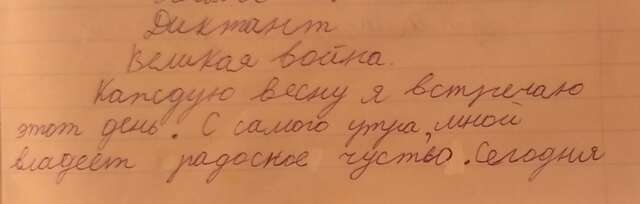 Диктант
Великая война.
Каждую весну я встречаю
этот день. С самого утра, мной
владеет радосное чуство. Сегодня